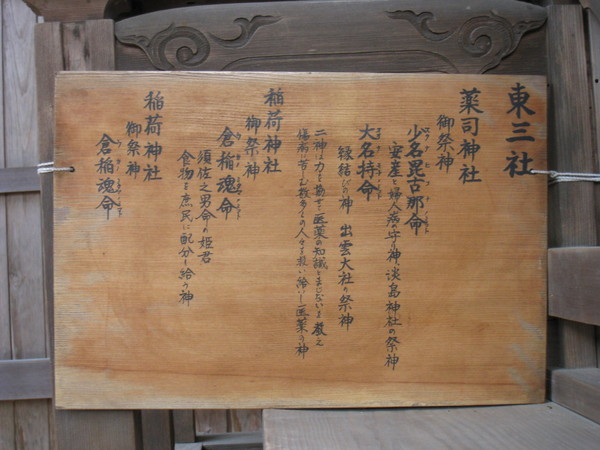 東三社
薬司神社
御祭神
少名毘古那命
安産と婦人病の守り神、淡島神社の祭神
大名持命
縁結びの神 出雲大社の祭神
二神は力を勘せ、医薬の知識とまじないを教え
傷病に苦しむ数多くの人々を救い給いし医薬の神
稲荷神社
御祭神
倉稲魂命
須佐之男命の姫君
食物を庶民に配分し給う神
稲荷神社
御祭神
倉稲魂命